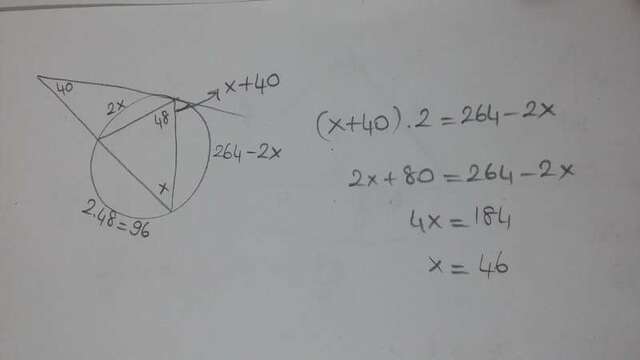 40
2x
x+40
48
264-2x
x
2.48=96
(x+40).2=264-2x
2x+80=264-2x
4x=184
x=46